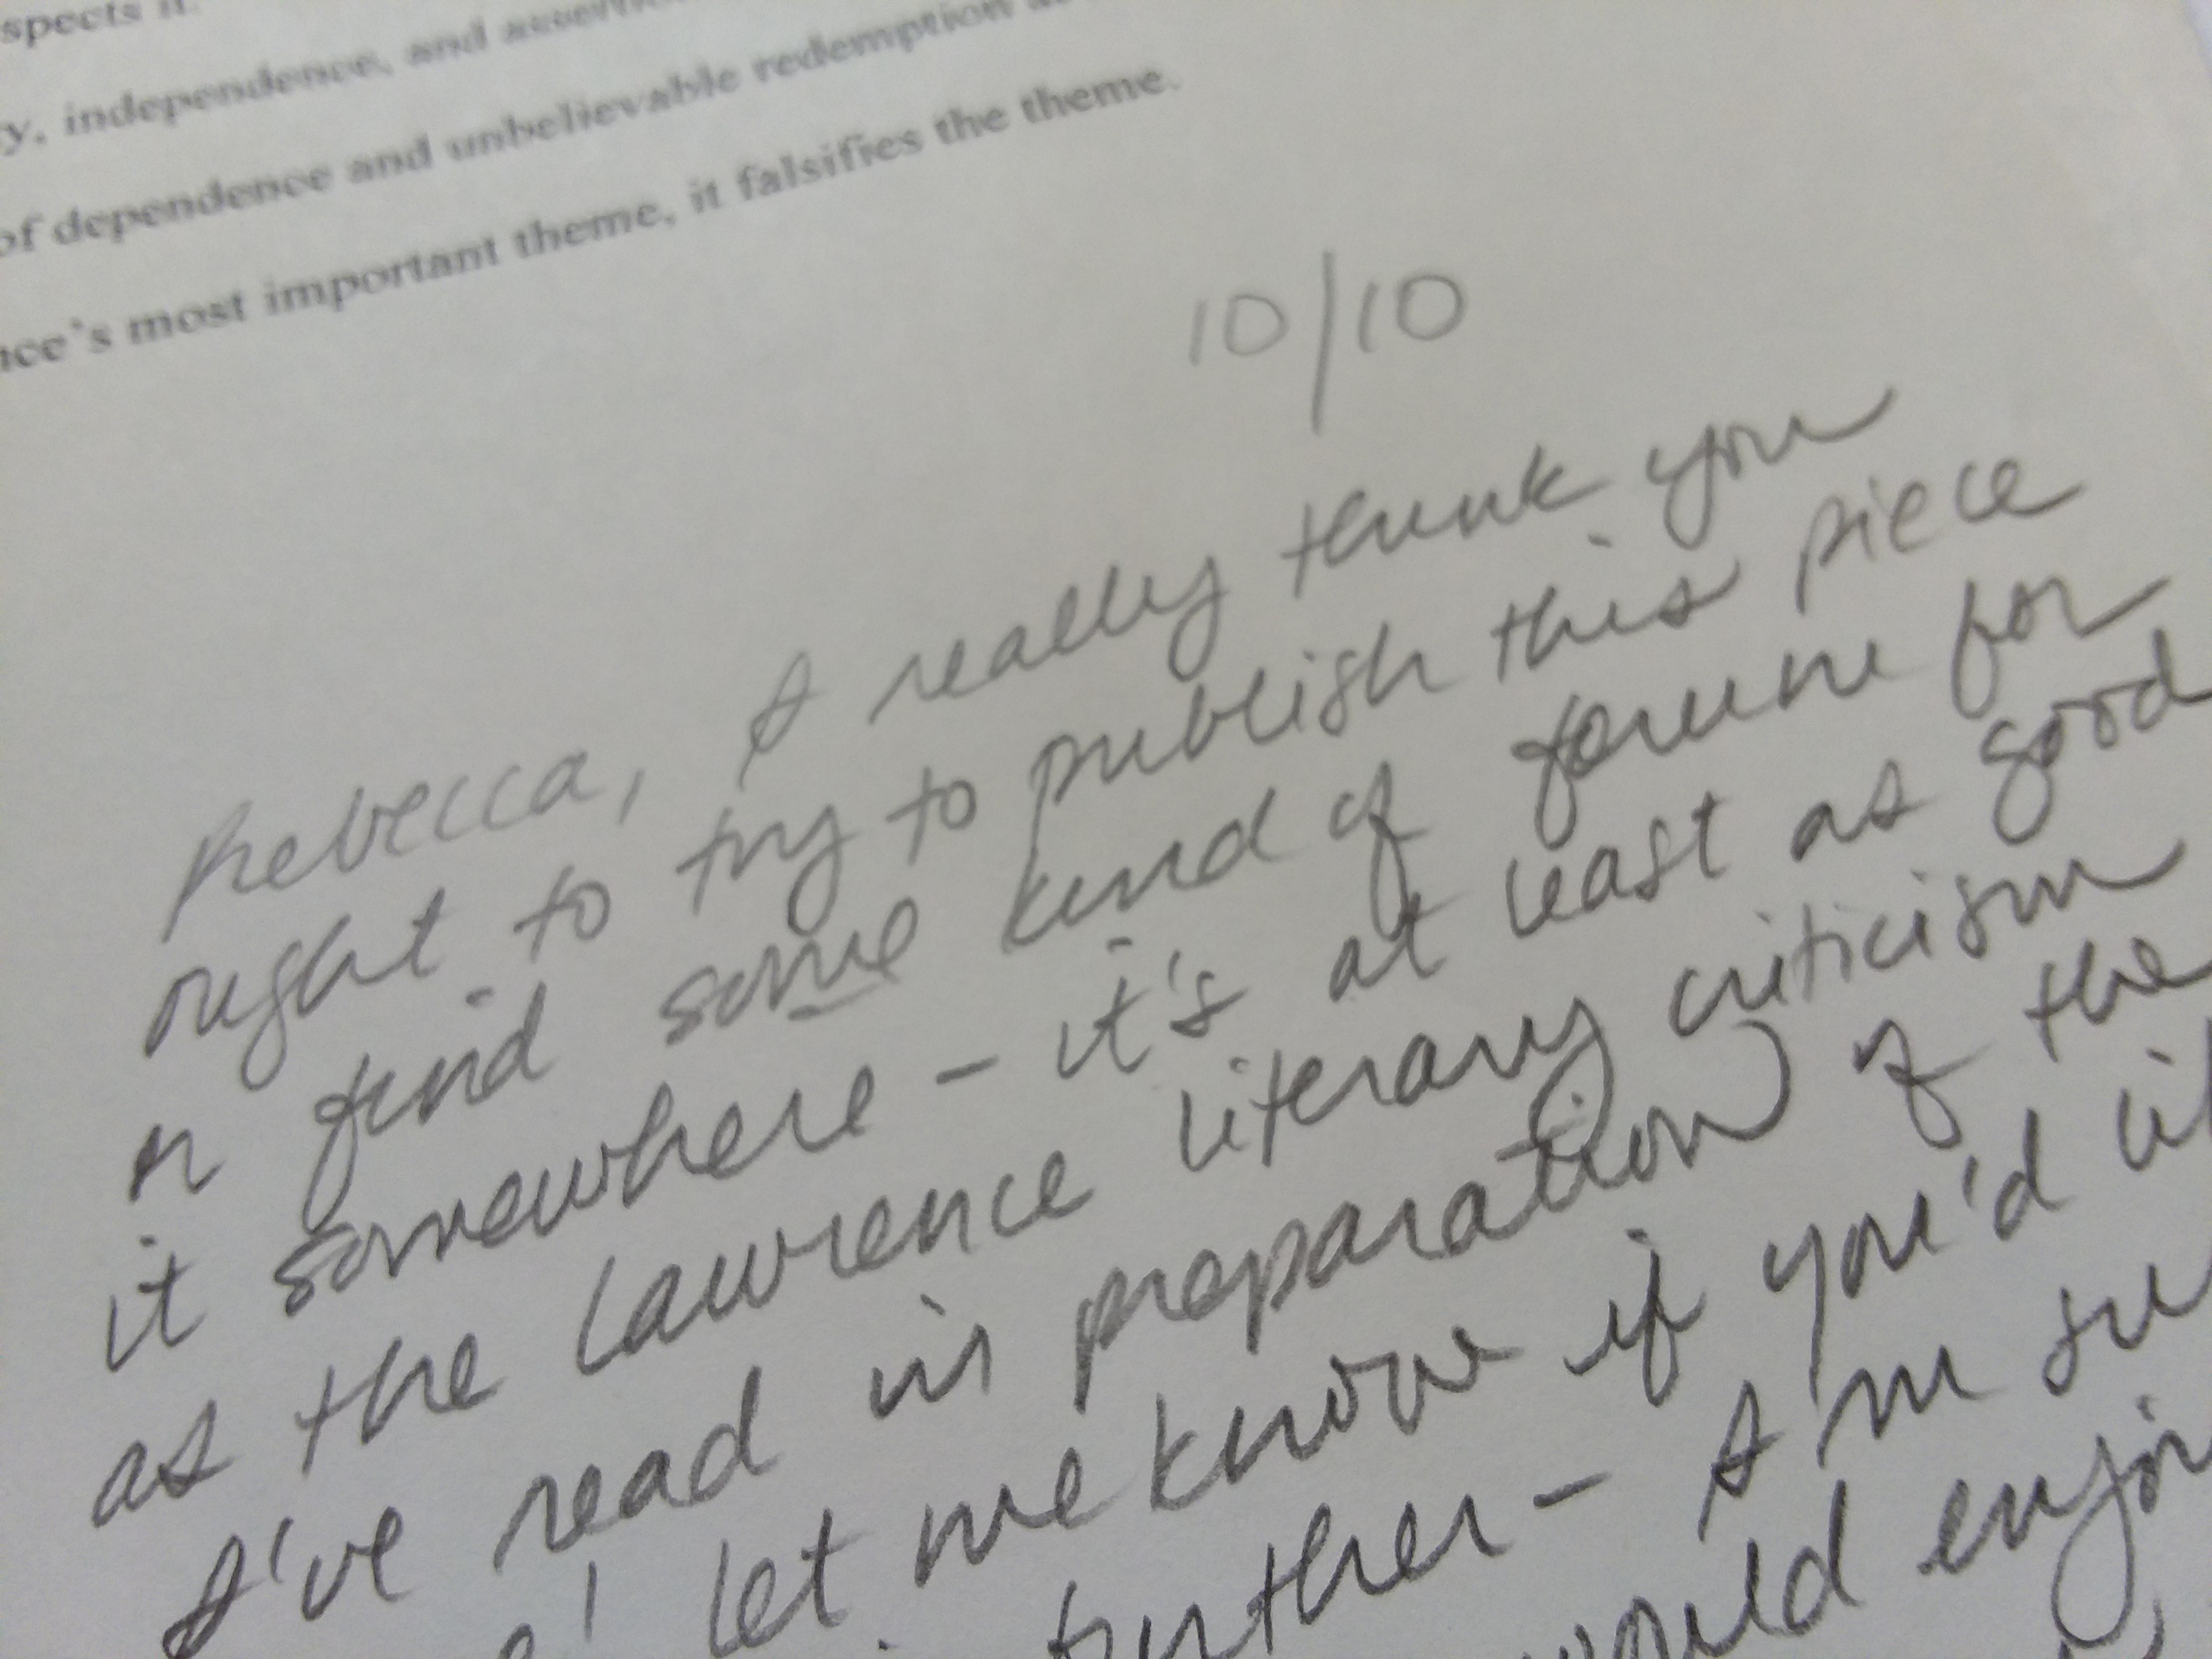 spects it.
y, independence, and
of dependence and unbelievable redemption
nce's most important theme, it falsifies the theme.
10/10
Rebecca, I really think you
ought to try to publish this piece
or find some kind of forum for
it somewhere – it's at least as good
as the Lawrence literary criticism
I've read in preparation of the
! Let me know if you'd
further – I'm
would enjoy